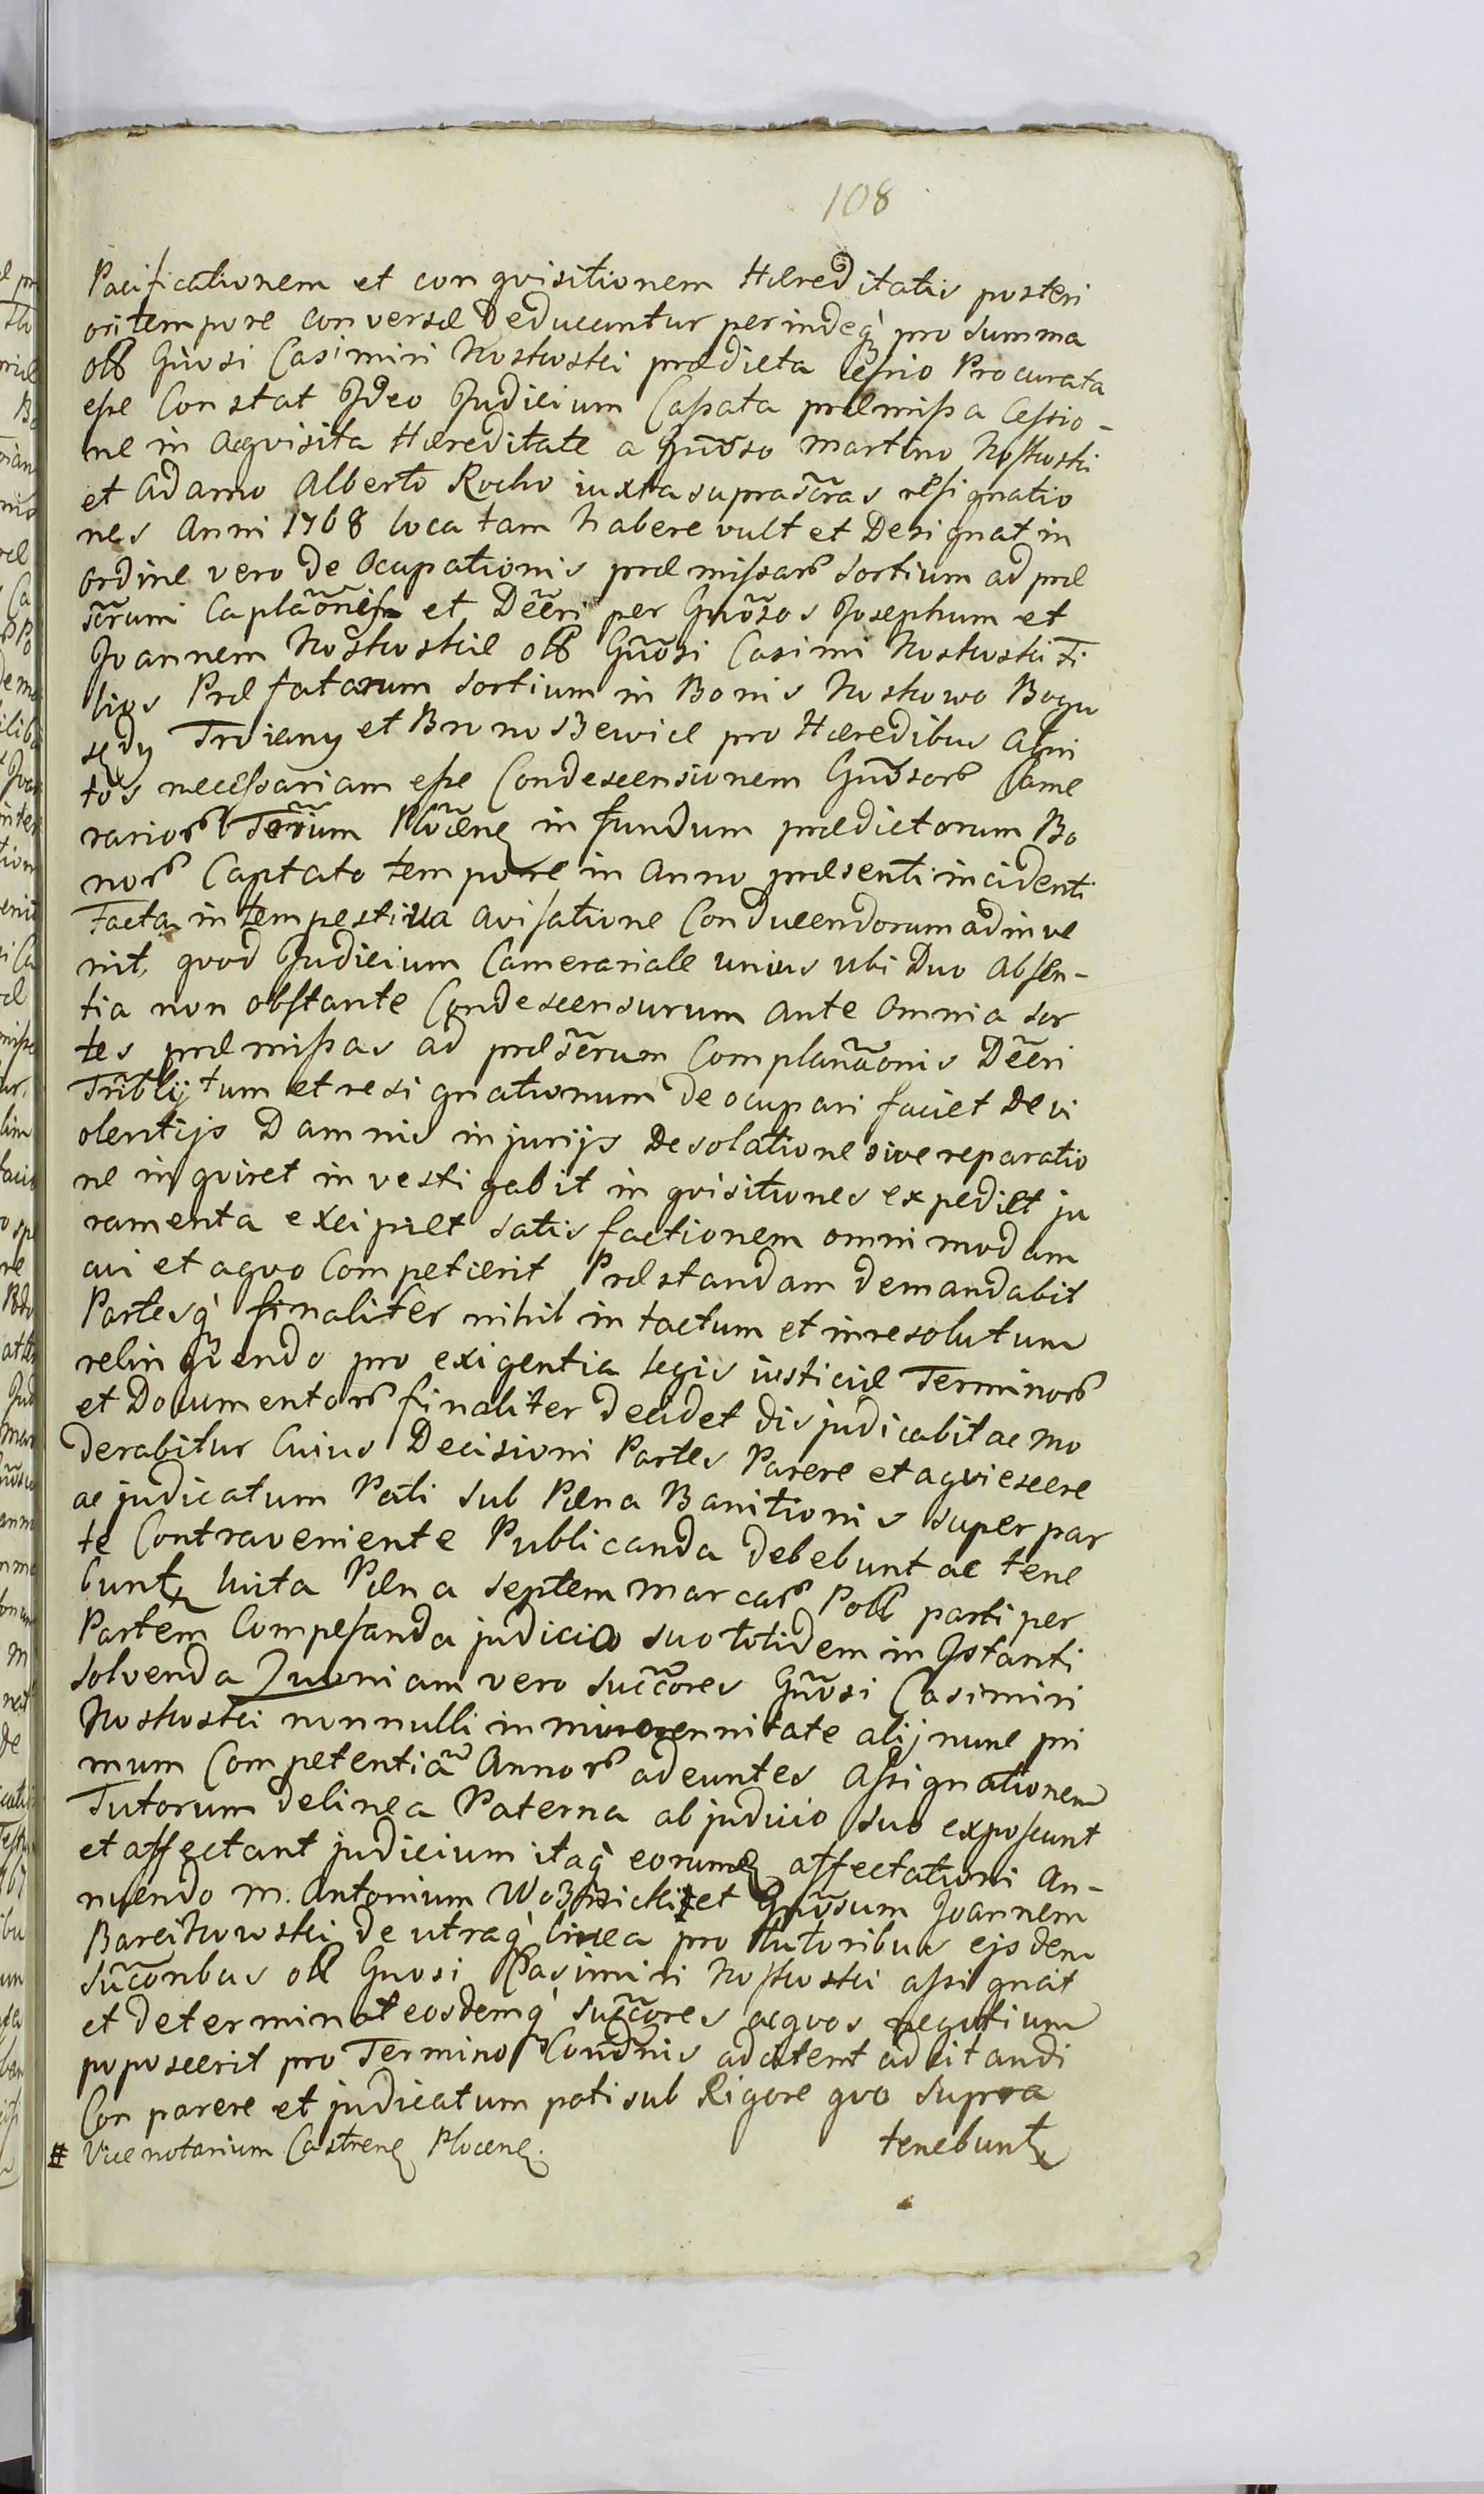 108
Pacificationem et conqvisitionem Hæreditatis posteri
ori tempore conversæ Deducuntur perindeq̀ pro summa
olb Gnosi Casimiri Noskoski prædicta Cessio Procurata
esse Constat Ideo Judicium Cassata præmissa Cessio-
ne in Acqvisita Hæreditate a Gnõso Martino Noskoski
et Adamo Alberto Rocho iuxta suprascr̃as resignatio
nes Anni 1768 locatam habere vult et Designat in
ordine vero de Ocupationis præmissarũ Sortium ad præ
scr̃um Caplãonis et Decr̃i per Gnõsos Josephum et
Joannem Noskoskie olb Gnõsi Casimi Noskoski Fi
lios Præfatarum Sortium in Bonis Noskowo Bogu
sędy Troiany et Bronoszewice pro Hæredibus Agni
tos necessariam esse Condescensionem Gnõsorũ Came
rariorũ Ter̃rum Plocen in fundum prædictorum Bo
norũ Captato tempore in Anno præsenti incidenti
Facta in tempestiva Avisatione Conducendorum adinve
nit, qvod Judicium Camerariale unius ubi Duo Absen-
tia non obstante Condescensurum Ante Omnia Sor
tes præmissas ad præscr̃um Complanãonis Decr̃i
Tribl̃ij tum et resignationum de ocupari faciet De vi
olentijs Damnis injurijs Desolatione sive reparatio
ne inqviret investigabit inqvisitiones expediet ju
ramenta excipiet satisfactionem omnimodam
cui et aqvo Competierit Præstandam demandabit
Partesq̀ finaliter nihil intactum et inresolutum
relinqvendo pro exigentia legis iusticiæ Terminorũ
et Documentorũ finaliter decidet disjudicabit ac mo
derabitur Cuius Decisioni Partes Parere et aqviescere
ac judicatum Pati sub Pæna Banitionis super par
te Contraveniente Publicanda debebunt ac tene
bunt luita Pæna septem marcarũ Poll parti per
Partem Compesanda judicio suo totidem in Istanti
solvenda Quoniam vero Succ̃ores Gnõsi Casimiri
Noskoski nonnulli in minorennitate alij nunc pri
mum Competentiã Annorũ adeuntes Assignationem
Tutorum de linea Paterna ab judicio suo exposcunt
et affectant judicium itaq̀ eorum affectationi An-
nuendo M. Antonium Woźnicki # et Gnõsum Joannem
Barcikowski de utraq̀ linea pro tutoribus ejsdem
Succ̃oribus olb Gnosi Casimiri Noskoski assignat
et determinat eosdemq̀ Succ̃ores aeqvos negotium
poposcerit pro Termino Condñis adcitent adcitandi
Con parere et judicatum pati sub Rigore qvo supra
tenebunt
# Vicenotarium Castren Plocen.